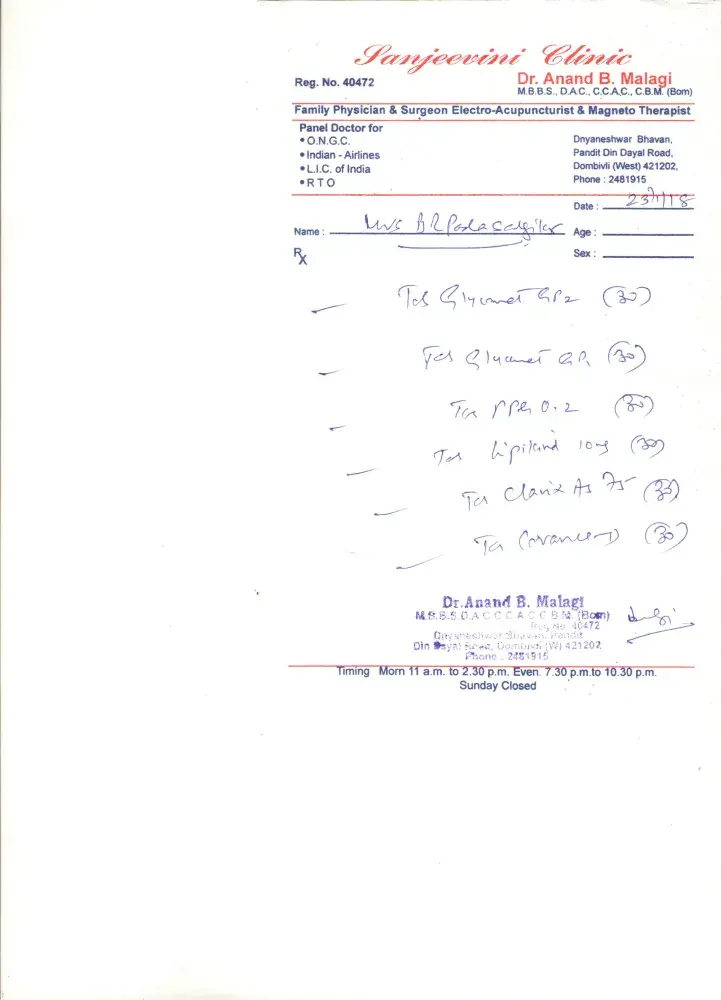 Sanjeevini Clinic
Reg. No. 40472
Dr. Anand B. Malagi
M.B.B.S., D.A.C., C.C.A.C., C.B.M. (Bom)
Family Physician & Surgeon Electro-Acupuncturist & Magneto Therapist
Panel Doctor for
• O.N.G.C.
• Indian - Airlines
• L.I.C. of India
• R T O
Dnyaneshwar Bhavan,
Pandit Din Dayal Road,
Dombivli (West) 421202.
Phone : 2481915
Date : 23/1/18
Name : Mrs A R
Age :
Sex :
Rx
Tab Glycomet GP2 (30)
Tab Glycomet (30)
Tab PPG 0.2 (30)
Tab Lipikind 10mg (30)
Tab Clavix As 75 (30)
Tab Covance-D (30)
Dr.Anand B. Malagi
M.B.B.S.D.A.C C C A C C B M. (Bom)
Reg No. 40472
Dnyaneshwar Bhavan, Pandit
Din Dayal Road, Dombivli (W) 421202.
Phone : 2481915
Timing Morn 11 a.m. to 2.30 p.m. Even. 7.30 p.m.to 10.30 p.m.
Sunday Closed